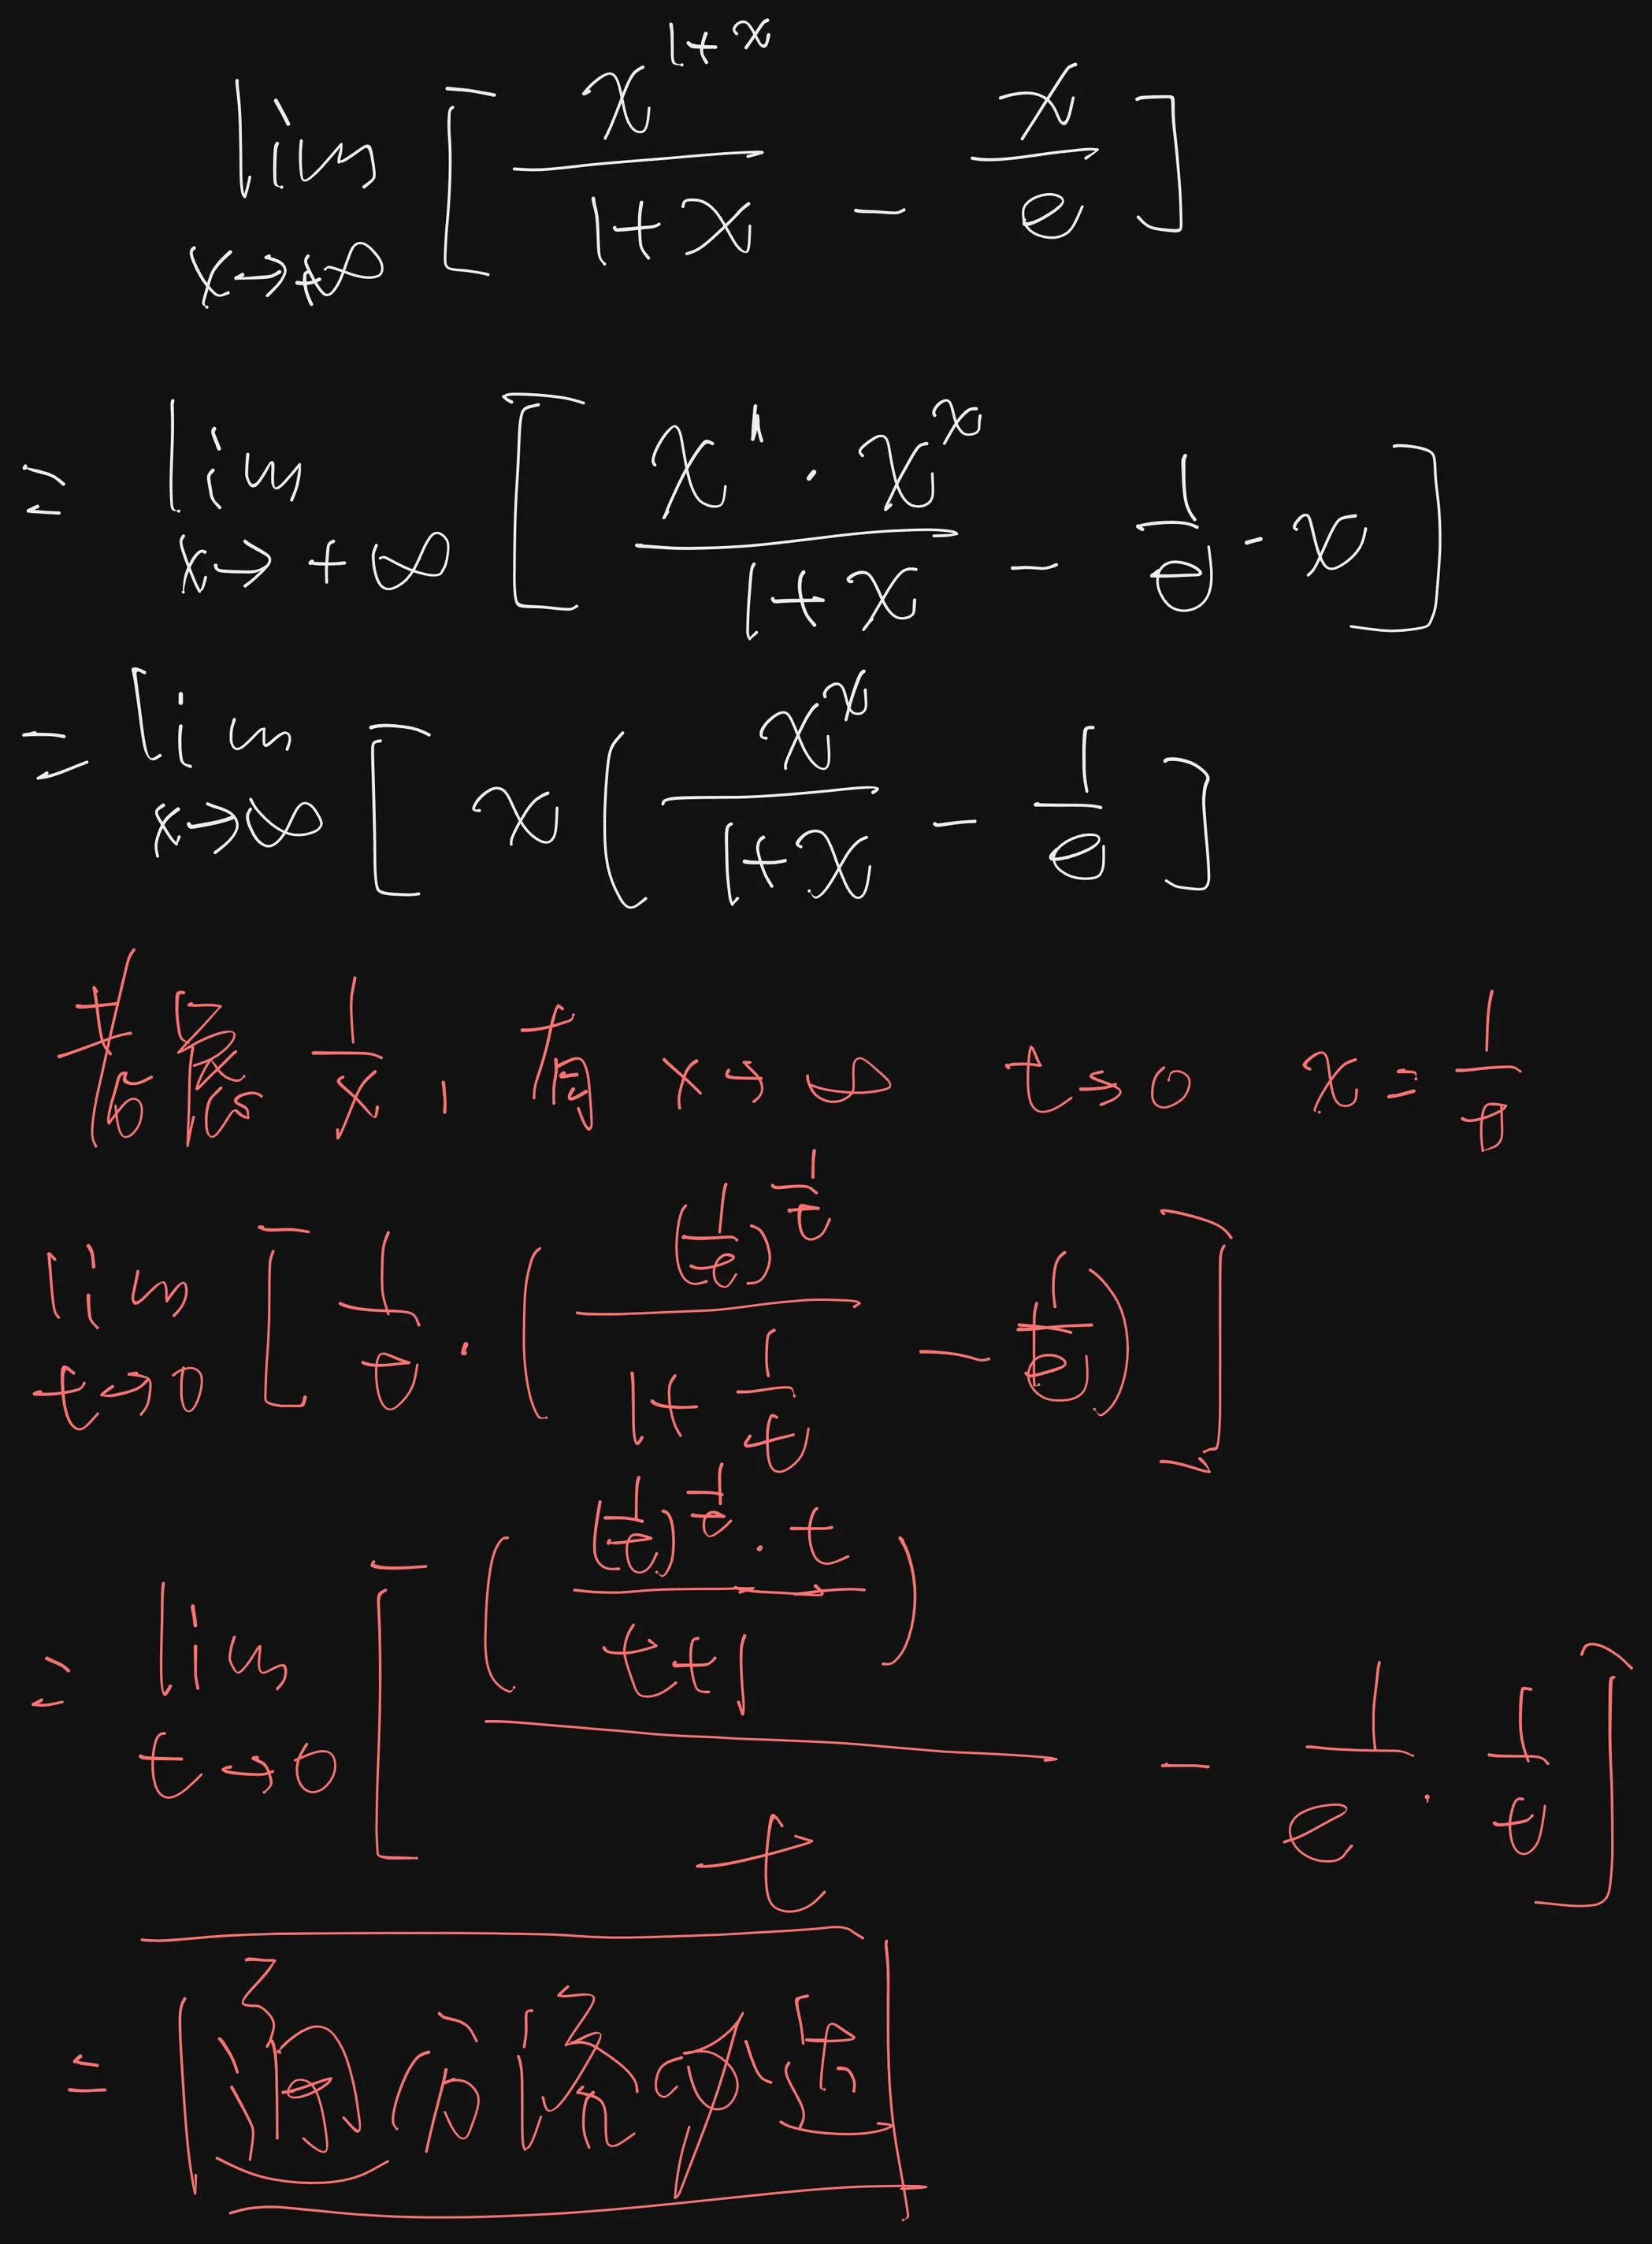 lim x→+∞ [ x^{1+x} / (1+x) - x/e ]
= lim x→+∞ [ x^1 · x^x / (1+x) - 1/e · x ]
= lim x→∞ [ x ( x^x / (1+x) - 1/e ]
1/x , 有 x→∞ t→0 x = 1/t
lim t→0 [ 1/t · ( (1/t)^{1/t} / (1+1/t) - 1/e ) ]
= lim t→0 [ ( (1/t)^{1/t} · t / (t+1) ) / t - 1/e · 1/t ]
=